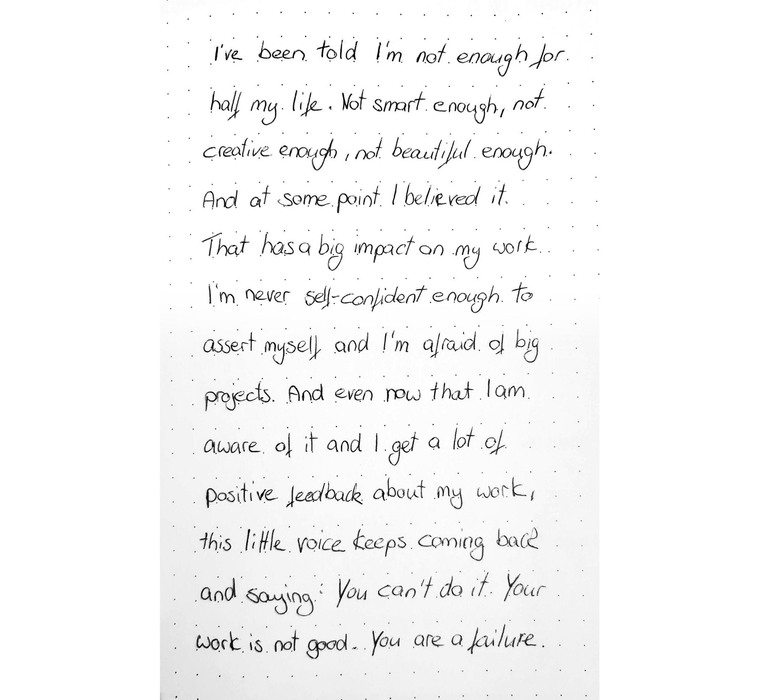 I've been told I'm not enough for
half my life. Not smart enough, not
creative enough, not beautiful enough.
And at some point I believed it.
That has a big impact on my work.
I'm never self-confident enough to
assert myself and I'm afraid of big
projects. And even now that I am
aware of it and I get a lot of
positive feedback about my work,
this little voice keeps coming back
and saying: You can't do it. Your
work is not good. You are a failure.